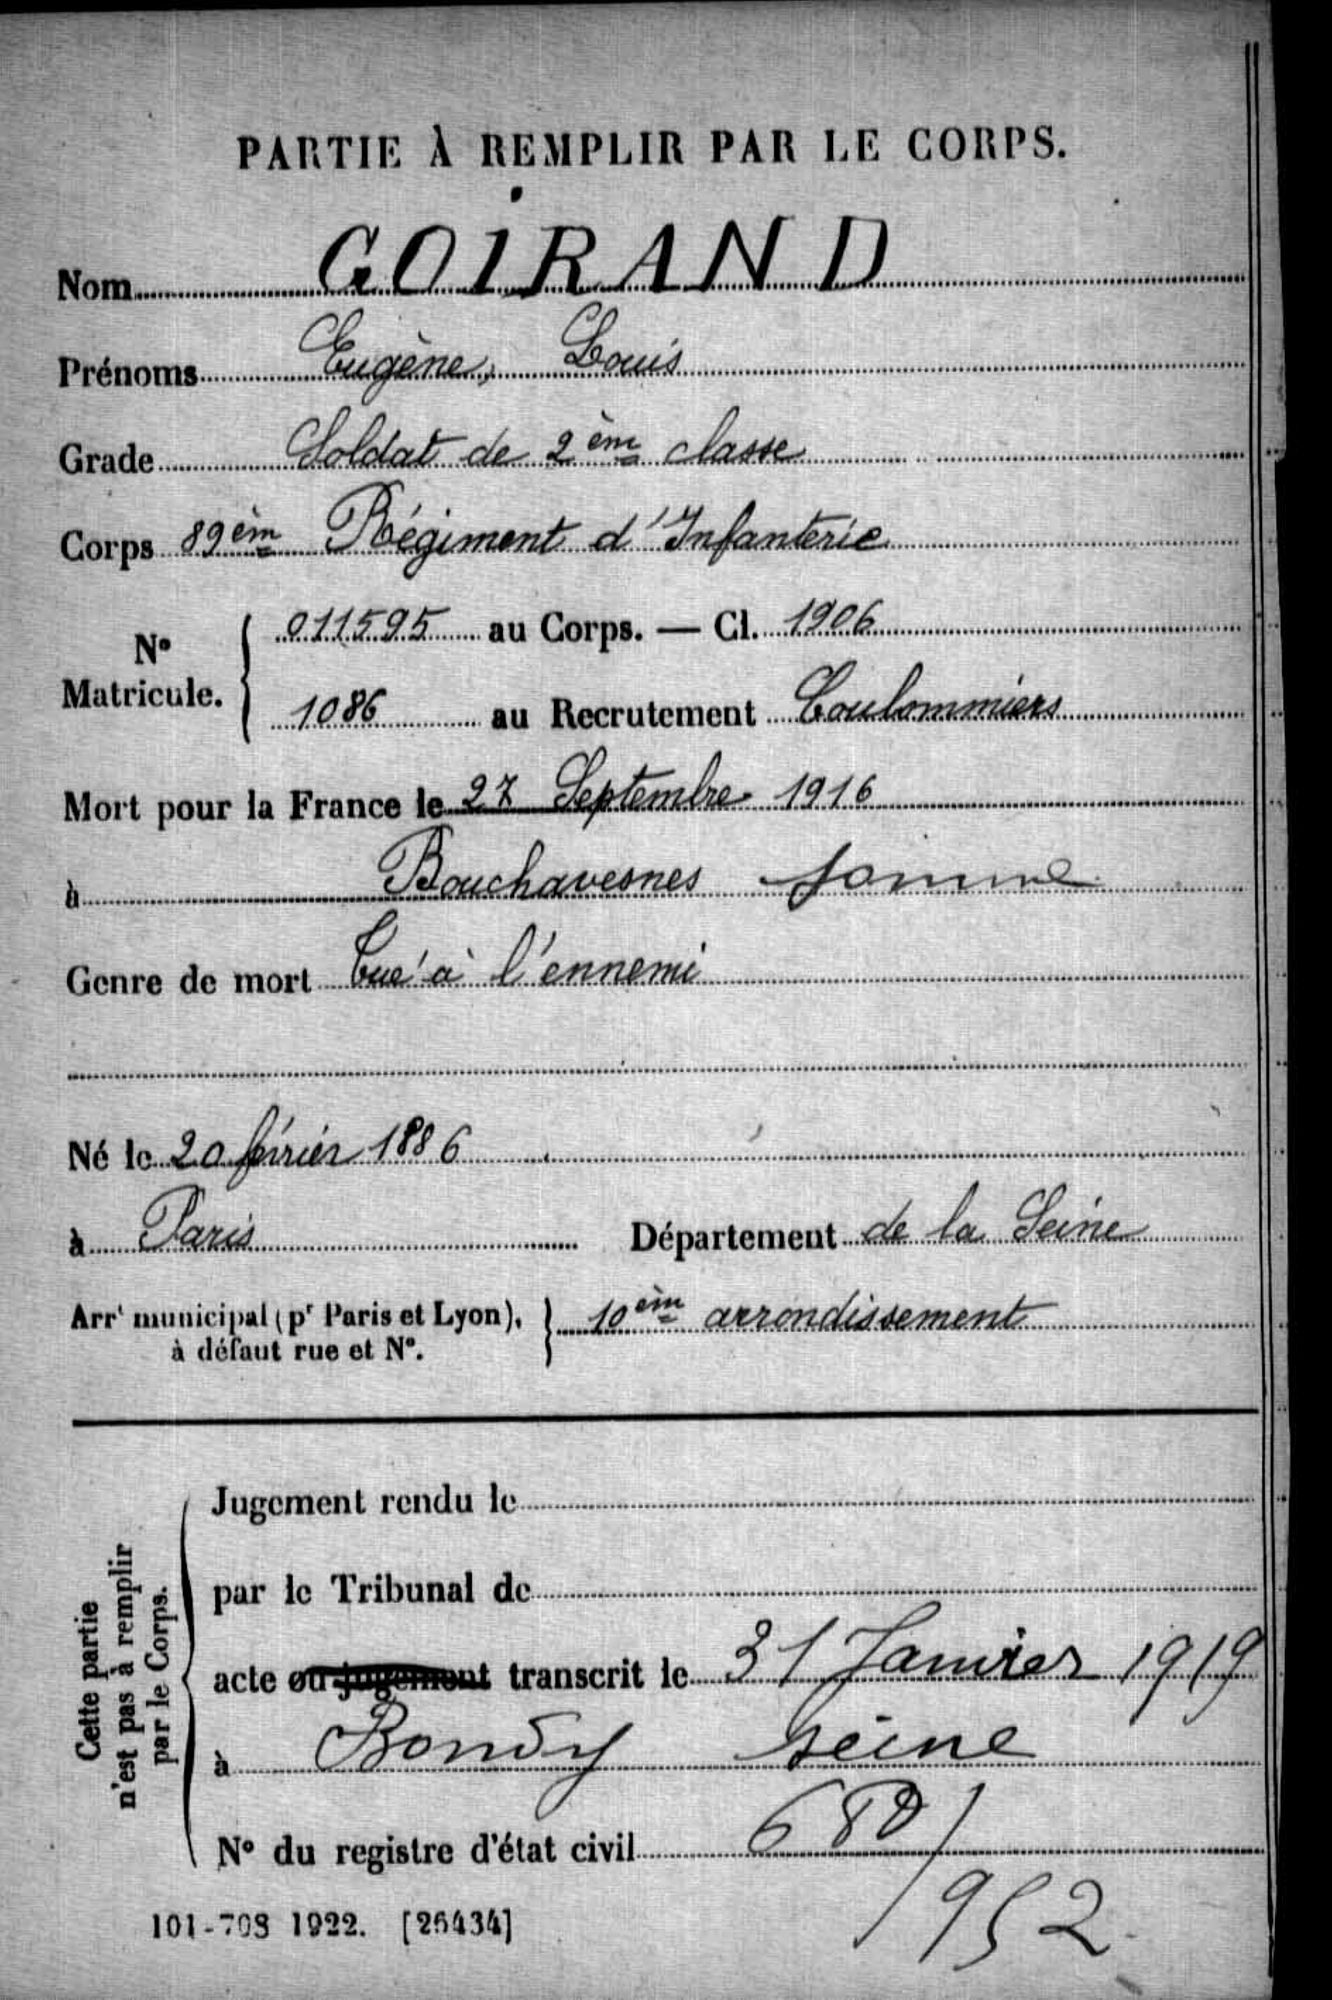 PARTIE À REMPLIR PAR LE CORPS.
Nom GOIRAND
Prénoms Eugène, Louis
Grade Soldat de 2ème classe
Corps 89ème Régiment d'Infanterie
N° Matricule. { 011595 au Corps. — Cl. 1906
1086 au Recrutement Coulommiers
Mort pour la France le 27 Septembre 1916
à Bouchavesnes Somme
Genre de mort Tué à l'ennemi
Né le 20 février 1886
à Paris Département de la Seine
Arrt municipal (pr Paris et Lyon), à défaut rue et N°. } 10ème arrondissement
Cette partie n'est pas à remplir par le Corps.
Jugement rendu le
par le Tribunal de
acte ou jugement transcrit le 31 Janvier 1919
à Bondy Seine
N° du registre d'état civil 680/
952
101-708 1922. [26434]